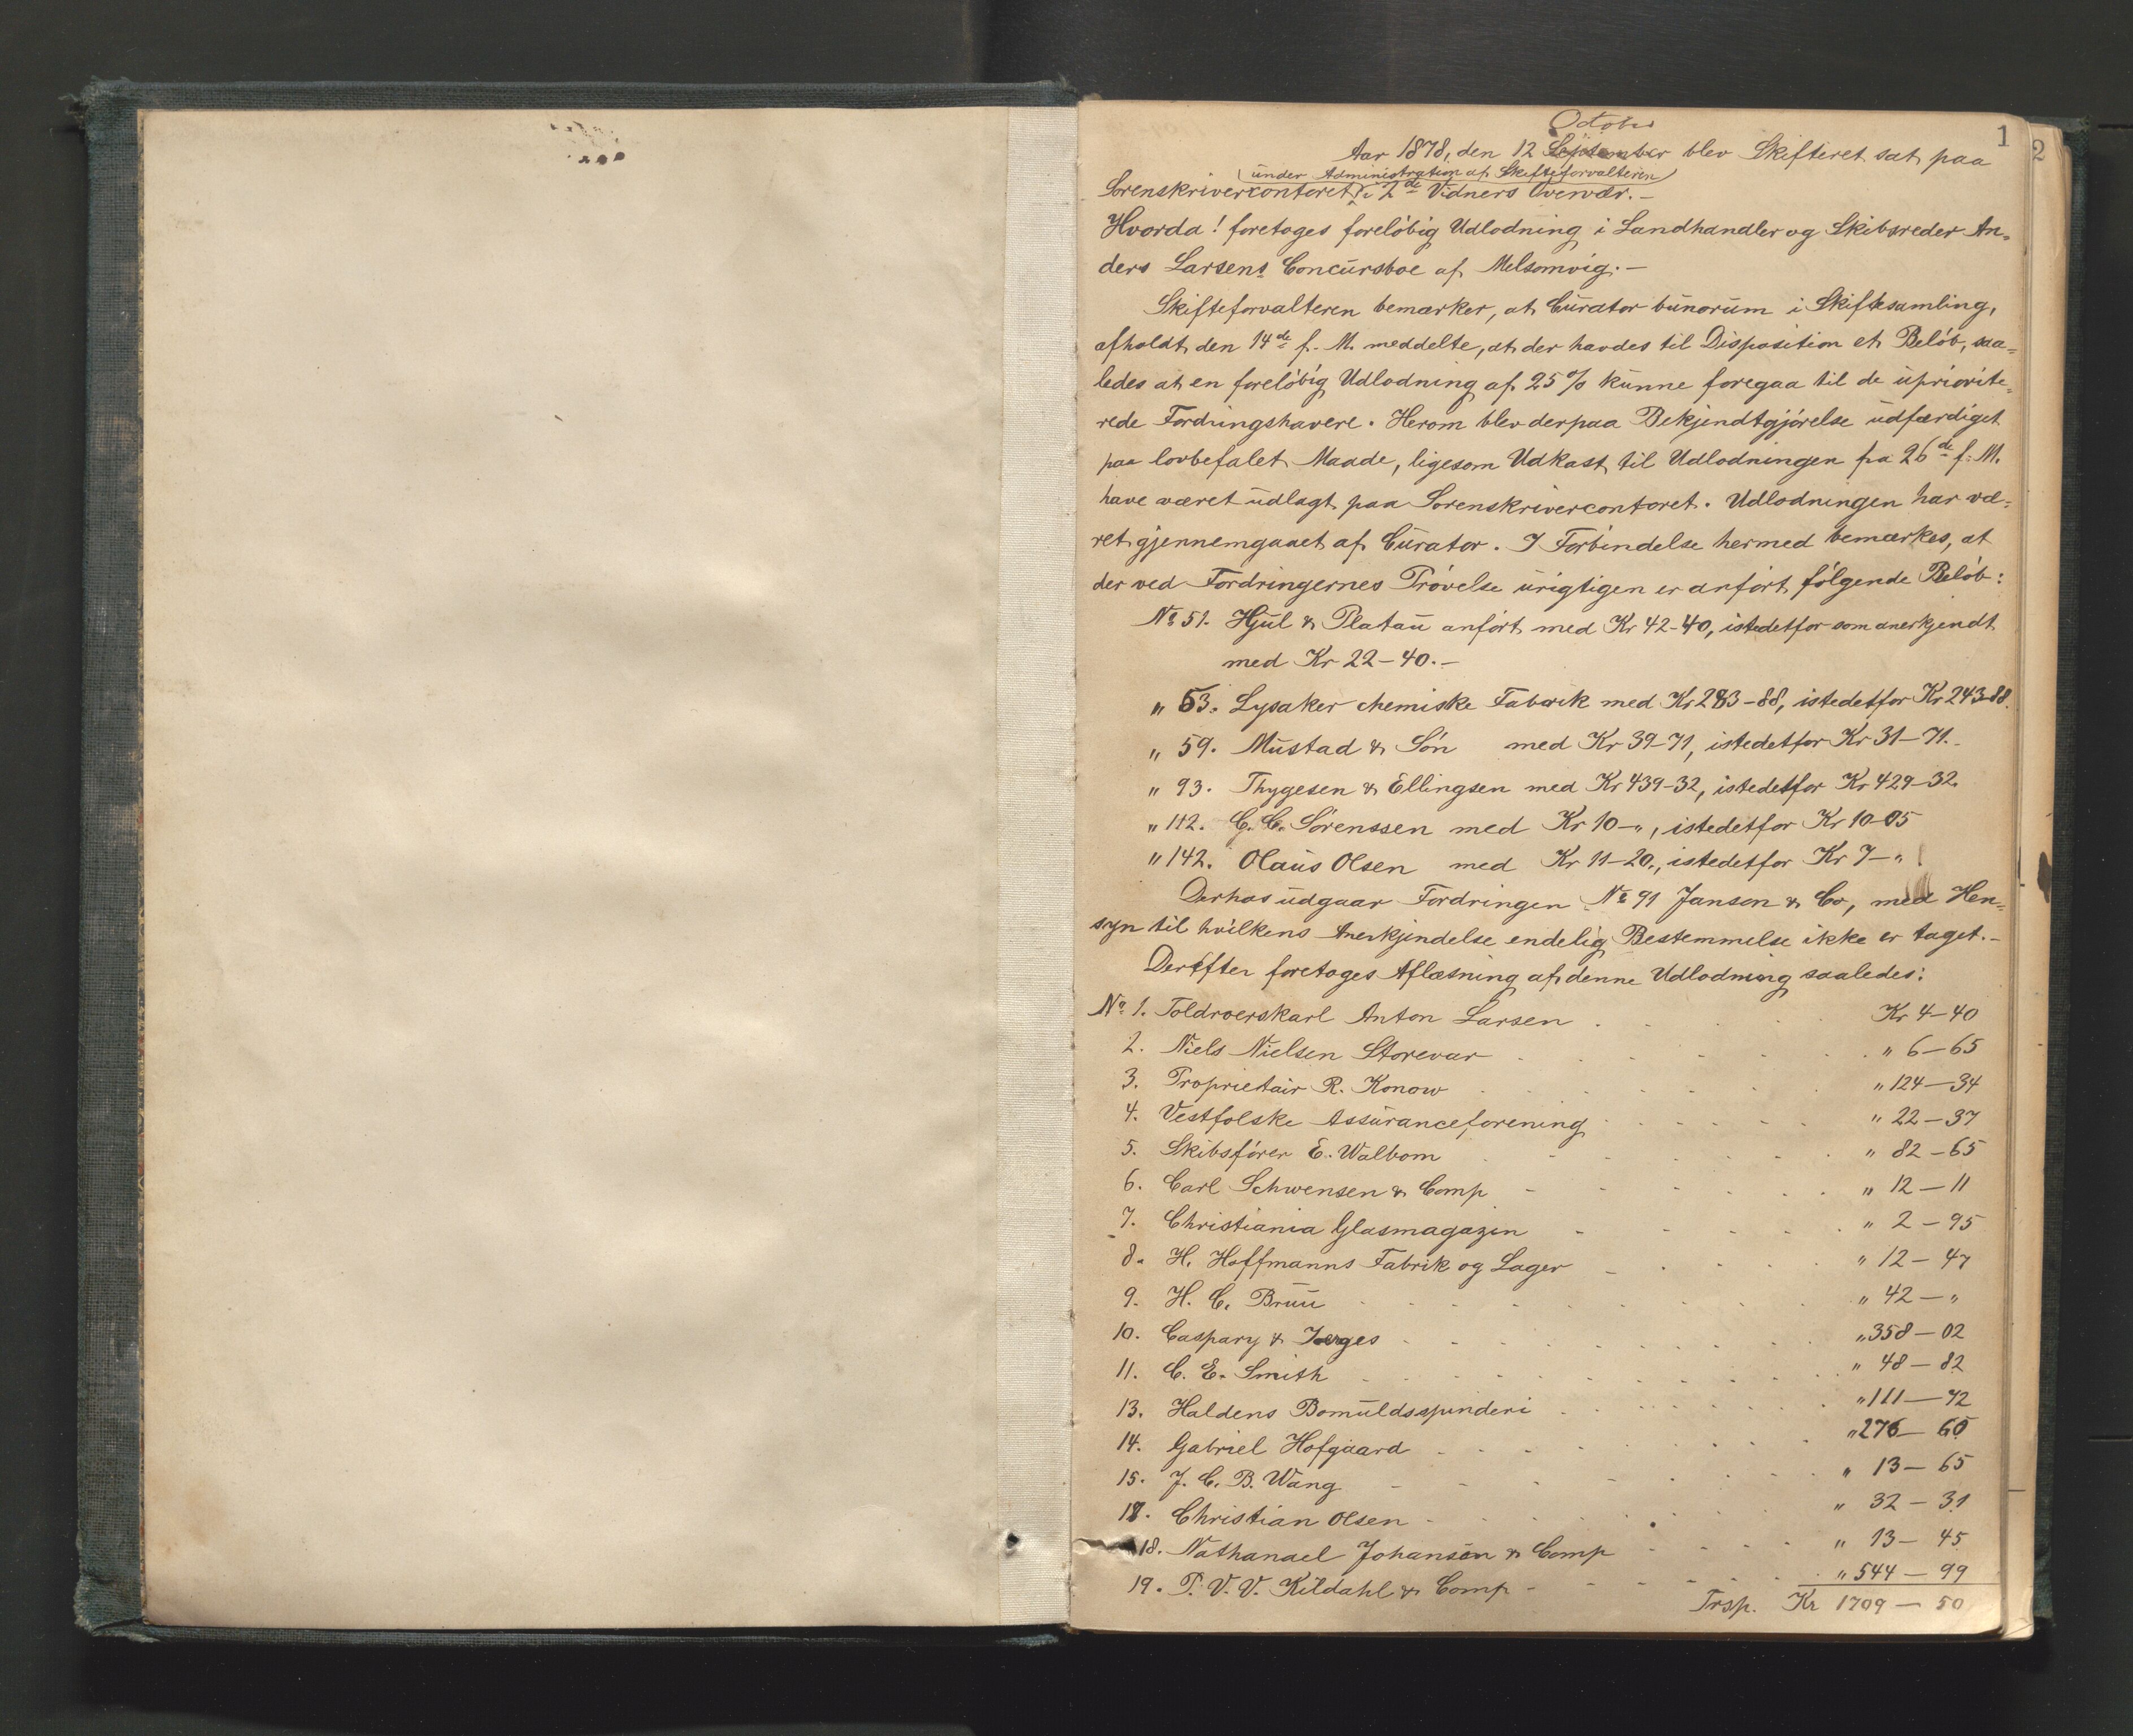 1
2
October
Aar 1878, den 12 September blev Skifteret sat paa
(under Administration af Skifteforvalteren)
Sorenskrivercontoret i 2de Vidners Overvær.–
Hvorda! foretoges foreløbig Udlodning i Landhandler og Skibsreder An=
ders Larsens Concursboe af Melsomvig.–
Skifteforvalteren bemærker, at Curator bunorum i Skiftesamling,
afholdt den 14de f. M. meddelte, at der havdes til Disposition et Beløb, saa=
ledes at en foreløbig Udlodning af 25% kunne foregaa til de upriorite=
rede Fordringshavere. Herom blev derpaa Bekjendtgjørelse udfærdiget
paa lovbefalet Maade, ligesom Udkast til Udlodningen fra 26de f. M.
have været udlagt paa Sorenskrivercontoret. Udlodningen har væ=
ret gjennemgaaet af Curator. I Forbindelse hermed bemærkes, at
der ved Fordringernes Prøvelse urigtigen er anført følgende Beløb:
No 51. Hjul & Platau anført med Kr 42-40, istedetfor som anerkjendt
med Kr 22–40.–
" 53. Lysaker chemiske Fabrik med Kr 283–88, istedetfor Kr 243-88.
" 59. Mustad & Søn med Kr 39-71, istedetfor Kr 31–71.
" 93. Thygesen & Ellingsen med Kr 439-32, istedetfor Kr 429–32.
" 112. C. C. Sørenssen med Kr 10–", istedetfor Kr 10-05
" 142. Olaus Olsen med Kr 11–20., istedetfor Kr 7–"
Derhos udgaar Fordringen No 91 Janson & Co, med Hen=
syn til hvilkens Anerkjendelse endelig Bestemmelse ikke er taget.–
Derefter foretoges Aflæsning af denne Udlodning saaledes:
No 1. Toldroerskarl Anton Larsen Kr 4–40
2. Niels Nielsen Storevar " 6–65
3. Proprietair R. Konow " 124–34
4. Vestfolske Assuranceforening " 22–37
5. Skibsfører E. Walbom " 82–65
6. Carl Schwensen & Comp " 12–11
7. Christiania Glasmagazin " 2–95
8. H. Hoffmanns Fabrik og Lager " 12–47
9. H. C. Bruu " 42–"
10. Caspary & Jerges " 358–02
11. C. E. Smith " 48–82
13. Haldens Bomuldsspinderi " 111–72
14. Gabriel Hofgaard " 276–60
15. J. C. B. Wang " 13–65
18. Christian Olsen " 32–31
18. Nathanael Johansen & Comp " 13–45
19. P. V. V. Kildahl & Comp " 544–99
Trsp. Kr 1709–50